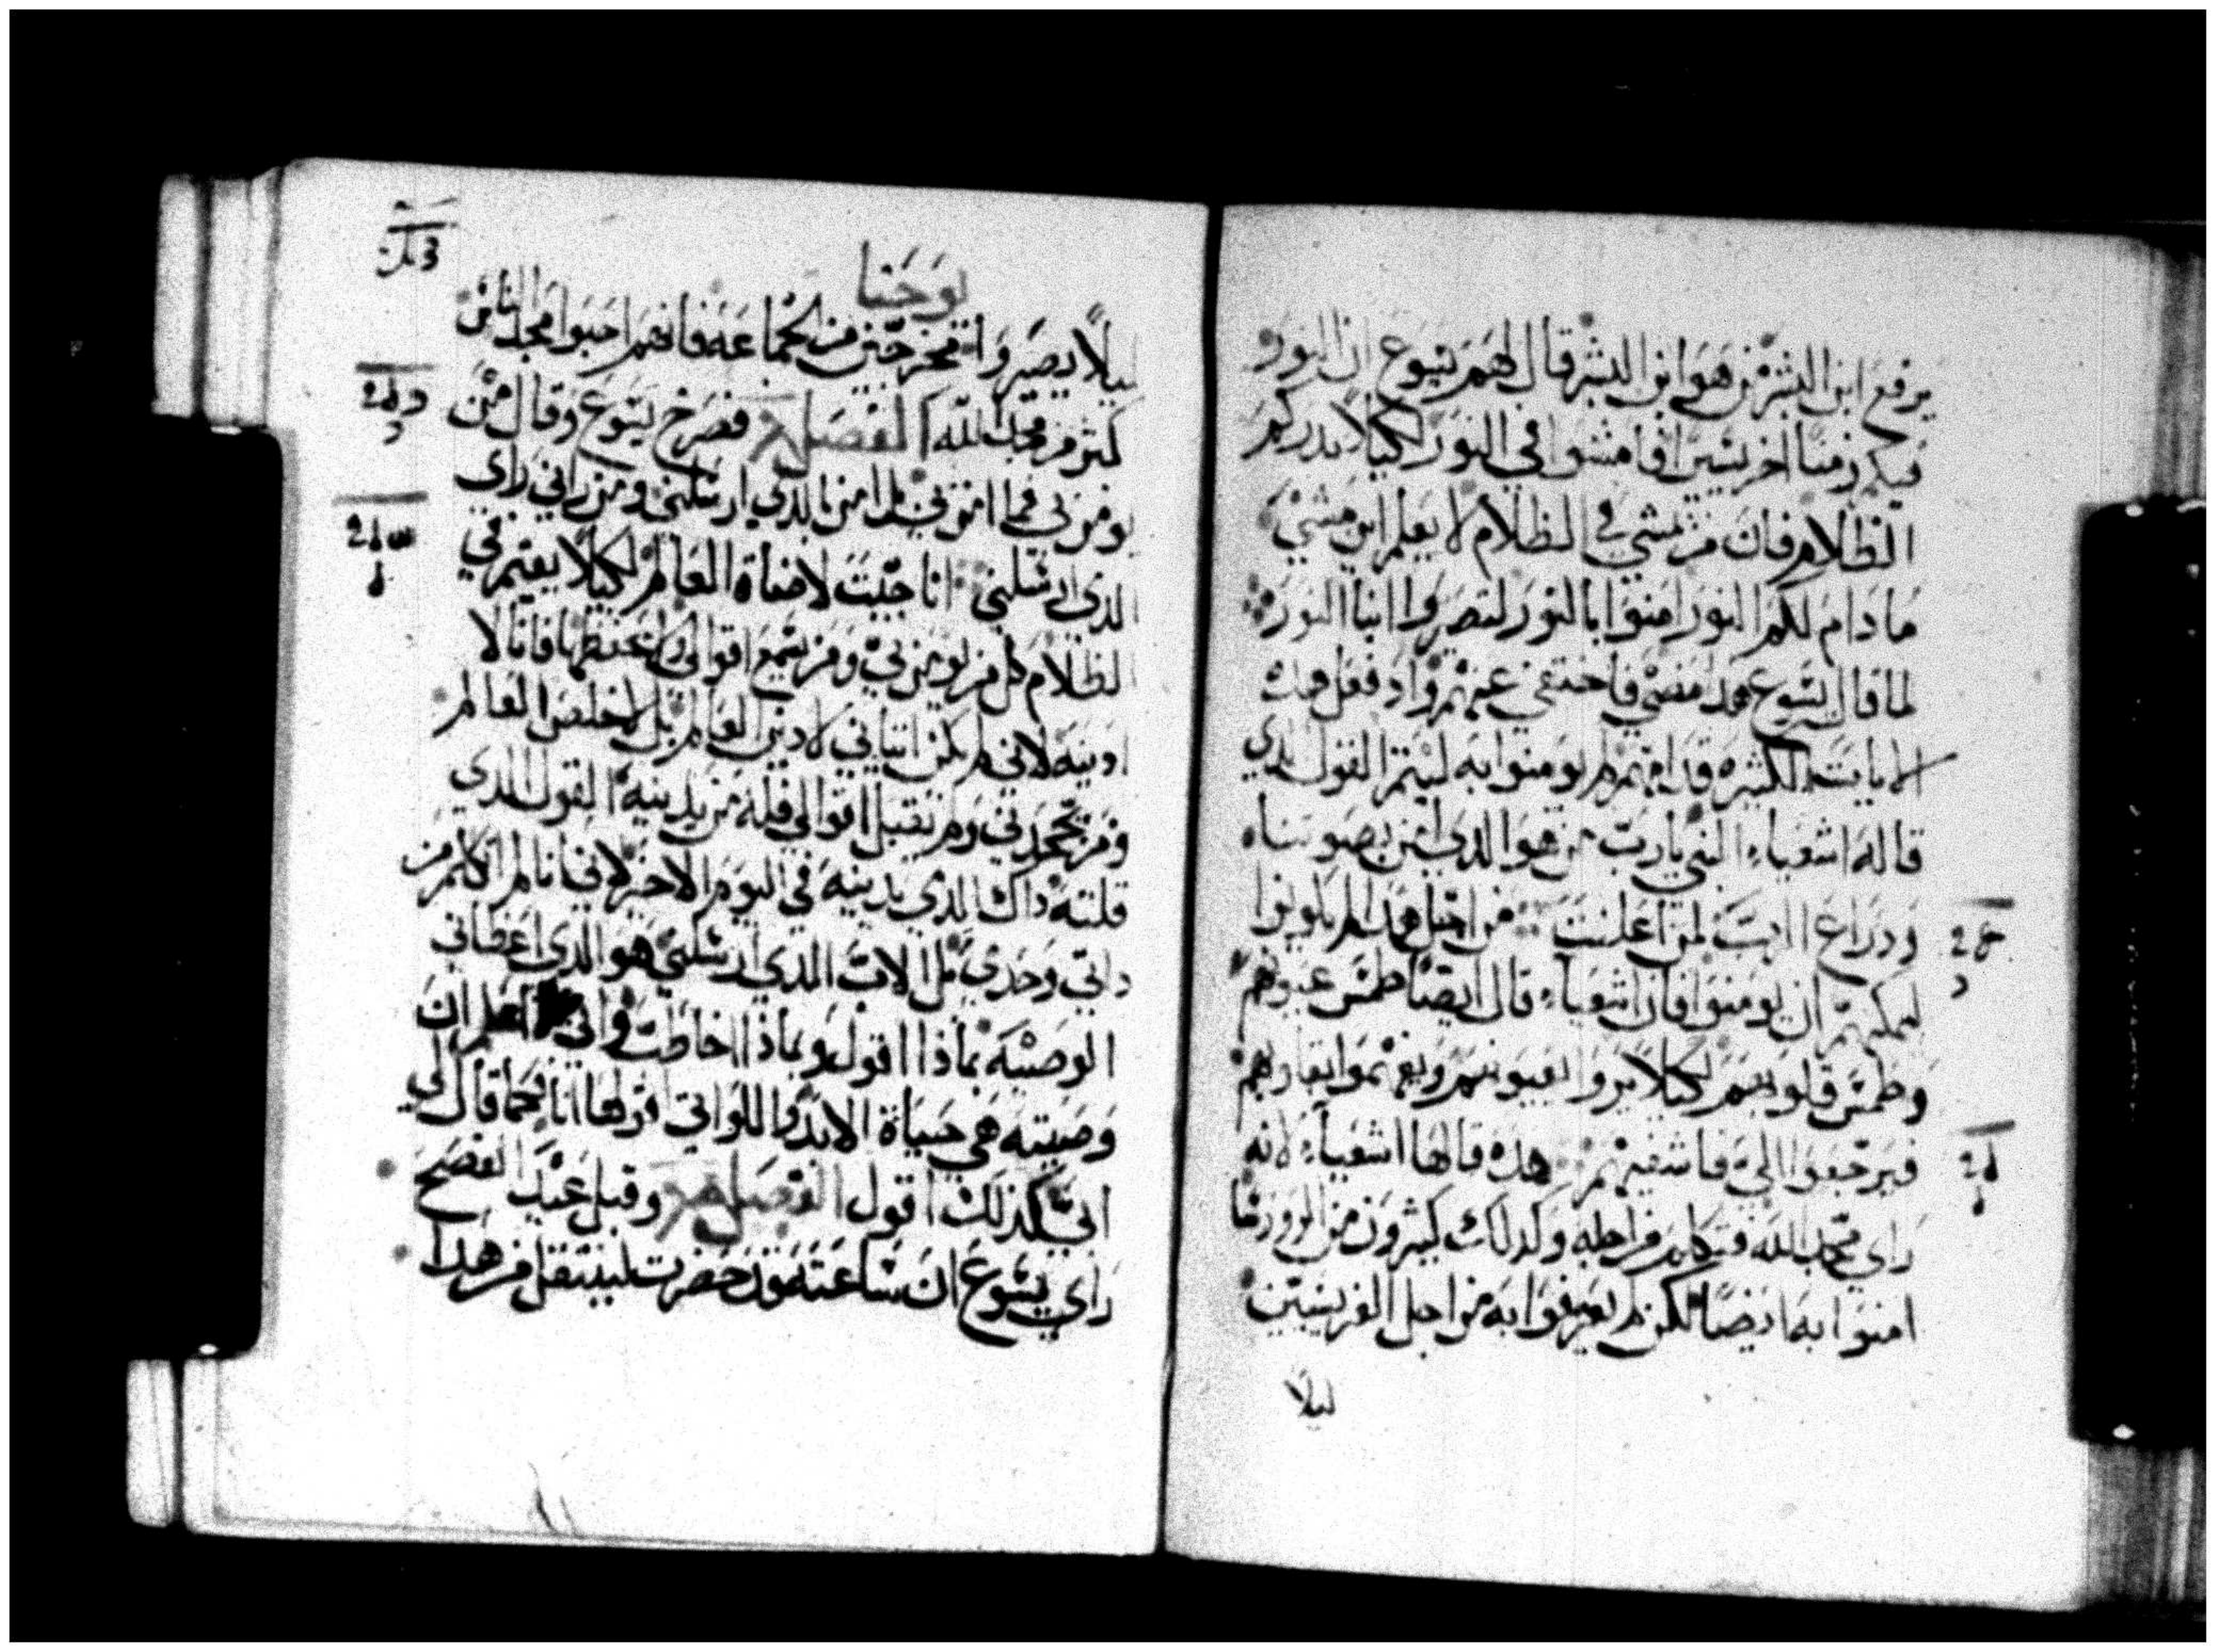 يرفع ابن البشر من هو ابن البشر قال لهم يسوع ان النور
فيكم زمنا اخر يسيرا فامشوا في النور لكيلا يدرككم
الظلام فان من يمشي في الظلام لا يعلم اين يمشي
ما دام لكم النور امنوا بالنور لتصيروا ابنا النور
لما قال يسوع هدا مضي فاختفي عنهم واد فعل هده
الايات الكثيره قدامهم لم يومنوا به ليتم القول الدي
قاله اشعياء النبي يارب من هو الدي امن بصوتنا
ودراع الرب لمن اعلنت من اجل هدا لم يكونوا
يمكنهم ان يومنوا فان اشعياء قال ايضا طمس عيونهم
وطمس قلوبهم لكيلا يروا بعيونهم ويفهموا بقلوبهم
فيرجعوا الي فاشفيهم هده قالها اشعياء لانه
راي مجد الله وكدلك كثيرون من الروسا
امنوا به ايضا لكن لم يعترفوا به من اجل الفريسيين
ليلا
يوحنا
ليلا يصيروا خارجين من الجماعه فانهم احبوا مجد الناس
اكثر من مجد الله الفصل فصرخ يسوع وقال من
يومن بي فما امن بي بل امن بالدي ارسلني ومن راني راي
الدي ارسلني انا جيت لاضاة العالم لكيلا يقيم في
الظلام كل من يومن بي ومن يسمع اقوالي ولم يحفظها فانا لا
ادينه لاني لم يكن اتياني لادين العالم بل لاخلص العالم
ومن يجحدني ولم يقبل اقوالي فله من يدينه القول الدي
قلته داك الدي يدينه في اليوم الاخر لاني انا لم اتكلم من
داتي وحدي بل الاب الدي ارسلني هو الدي اعطاني
الوصيه بماذا اقول وبماذا اخاطب واني اعلم ان
وصيته هي حياة الابد واللواتي اقولها انا فكما قال لي
ابي كذلك اقول الفصل وقبل عيد الفصح
راي يسوع ان ساعته قد حضرت لينتقل من هدا